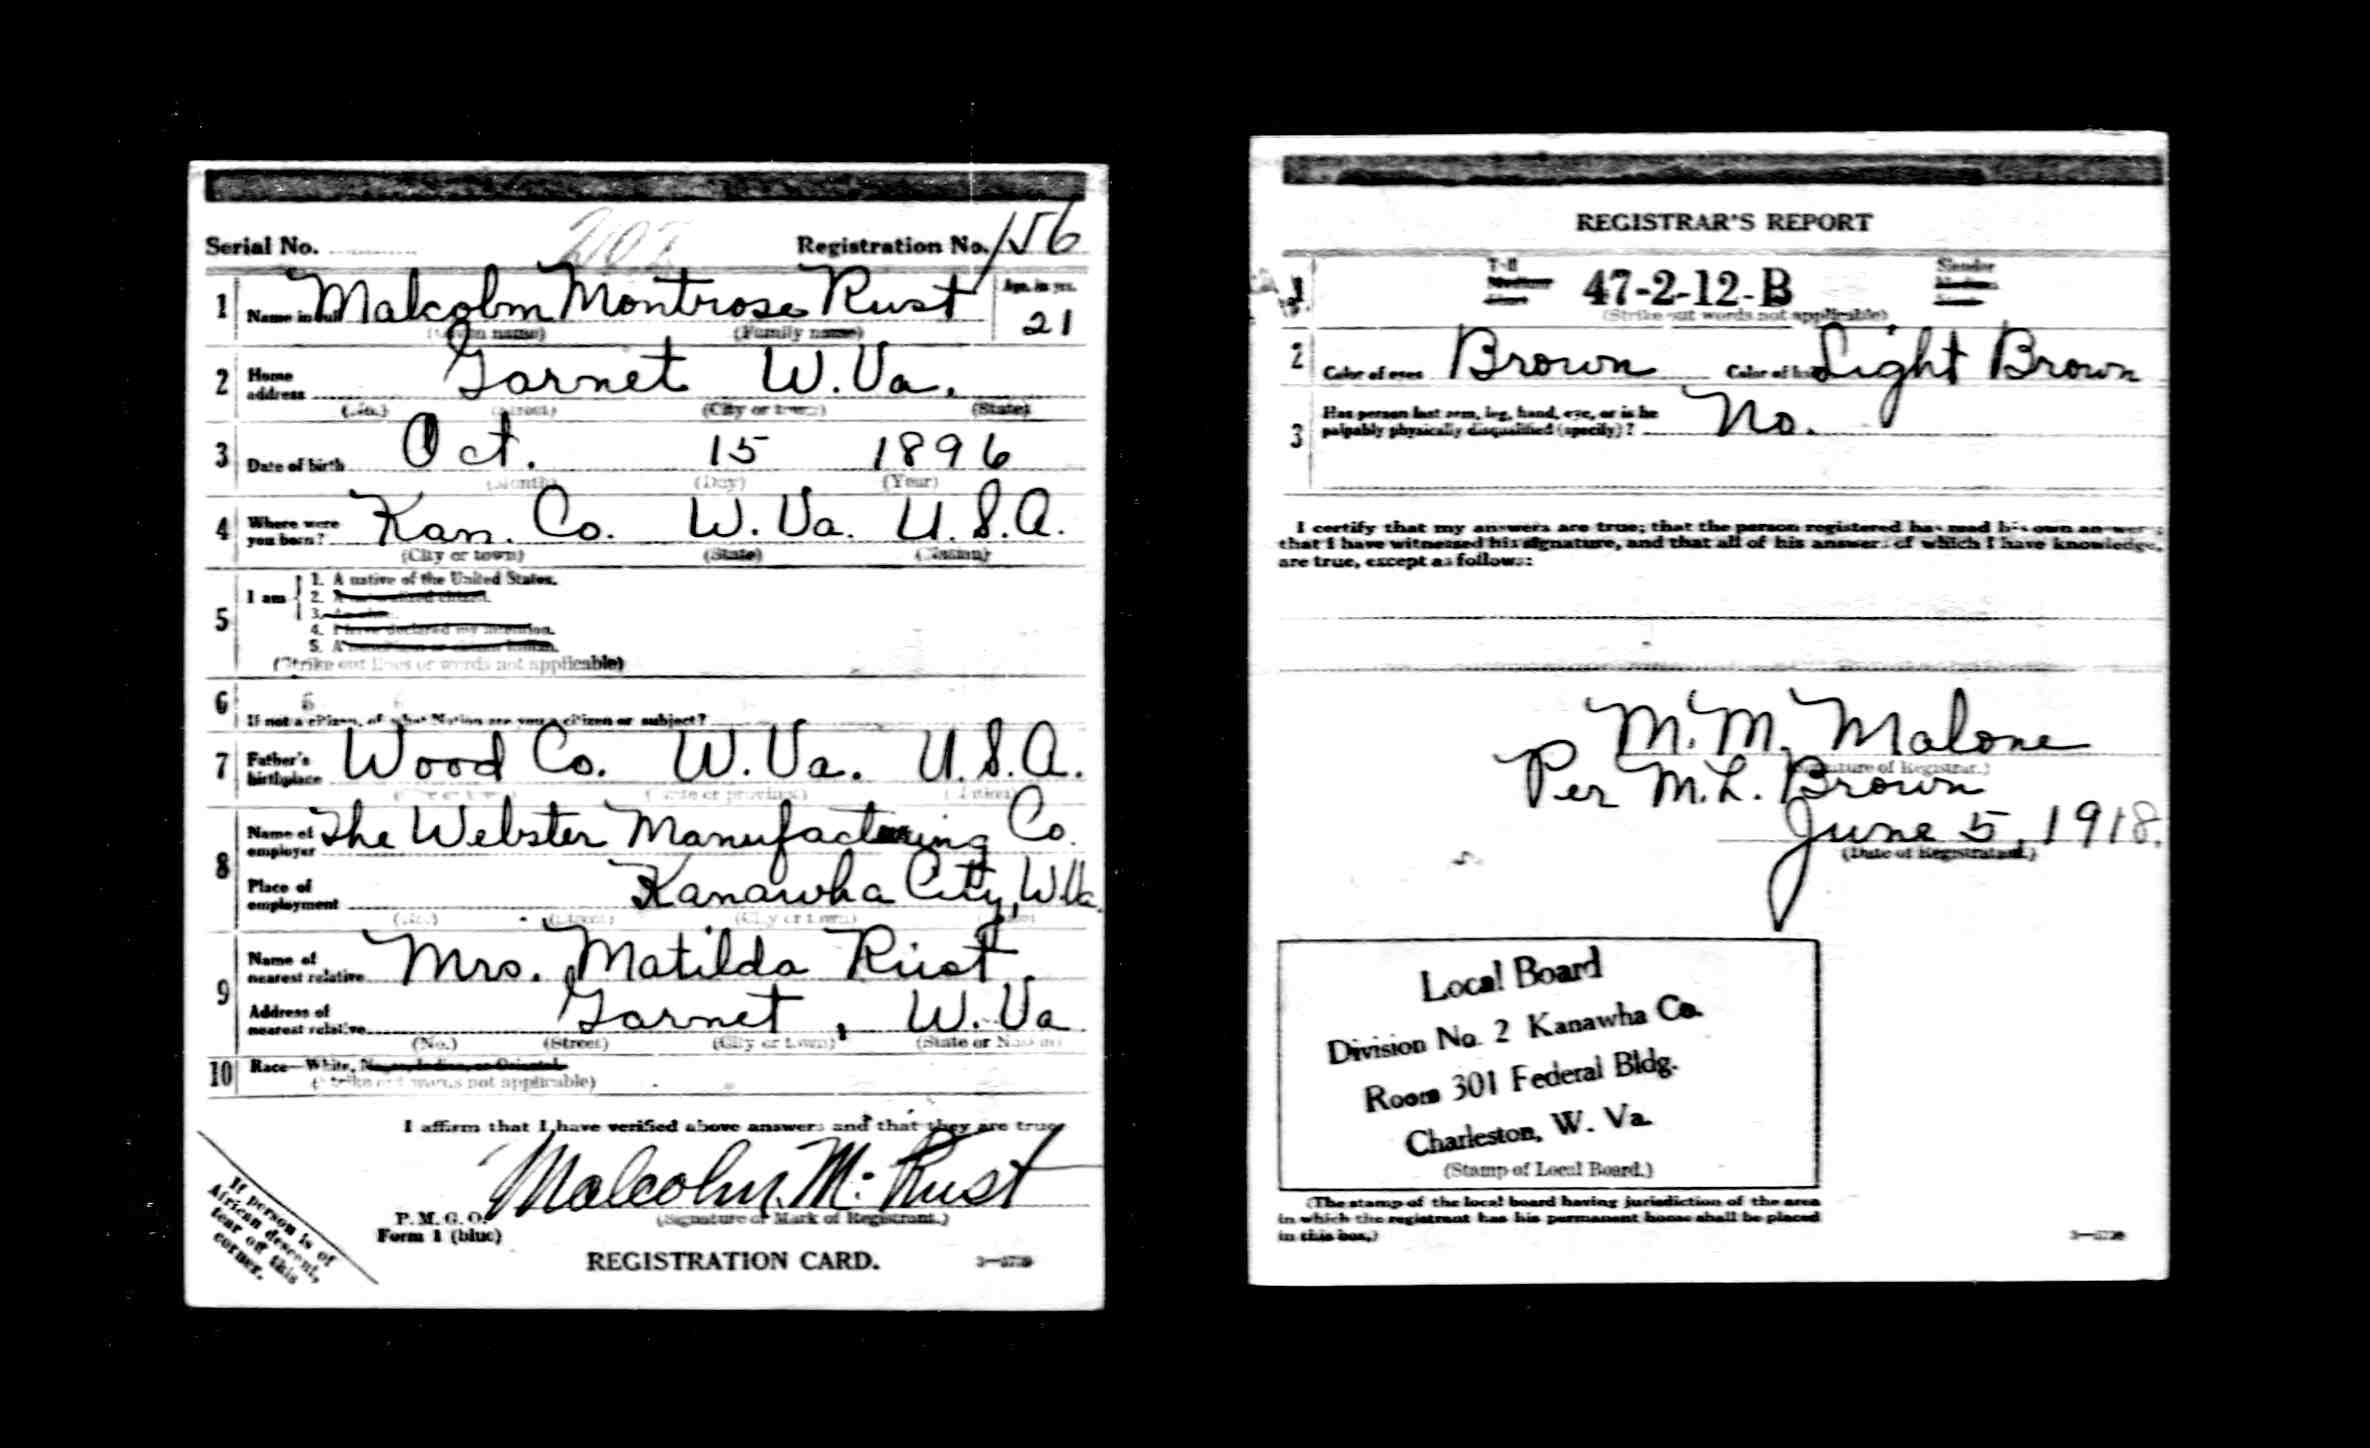 Serial No. 202 Registration No. 156
1 Name in full Malcolm Montrose Rust Age, in yrs. 21
(Given name) (Family name)
2 Home address Garnet W.Va.
(No.) (Street) (City or town) (State)
3 Date of birth Oct. 15 1896
(Month) (Day) (Year)
4 Where were you born? Kan. Co. W. Va. U.S.A.
(City or town) (State) (Nation)
5 I am
1. A native of the United States.
2. A naturalized citizen.
3. An alien.
4. I have declared my intention.
5. A
(Strike out lines or words not applicable)
6 If not a citizen, of what Nation are you a citizen or subject?
7 Father's birthplace Wood Co. W.Va. U.S.A.
(City or town) (State or province) (Nation)
8 Name of employer The Webster Manufacturing Co.
Place of employment Kanawha City, W.Va.
(No.) (Street) (City or town)
9 Name of nearest relative Mrs. Matilda Rust.
Address of nearest relative Garnet, W. Va
(No.) (Street) (City or town) (State or Nation)
10 Race—White, Negro, Indian, or Oriental.
(Strike out words not applicable)
I affirm that I have verified above answers and that they are true.
Malcolm M. Rust
P. M. G. O. (Signature or Mark of Registrant.)
Form 1 (blue)
REGISTRATION CARD.
If person is of
African descent,
tear off this
corner.
REGISTRAR'S REPORT
1 Tall Medium Short 47-2-12-B Slender Medium Stout
(Strike out words not applicable)
2 Color of eyes Brown Color of hair Light Brown
3 Has person lost arm, leg, hand, eye, or is he
palpably physically disqualified (specify)? No.
I certify that my answers are true; that the person registered has read his own answers;
that I have witnessed his signature, and that all of his answers of which I have knowledge,
are true, except as follows:
M. M. Malone
(Signature of Registrar.)
Per M. L. Brown
June 5, 1918.
(Date of Registration.)
Local Board
Division No. 2 Kanawha Co.
Room 301 Federal Bldg.
Charleston, W. Va.
(Stamp of Local Board.)
(The stamp of the local board having jurisdiction of the area
in which the registrant has his permanent home shall be placed
in this box.)